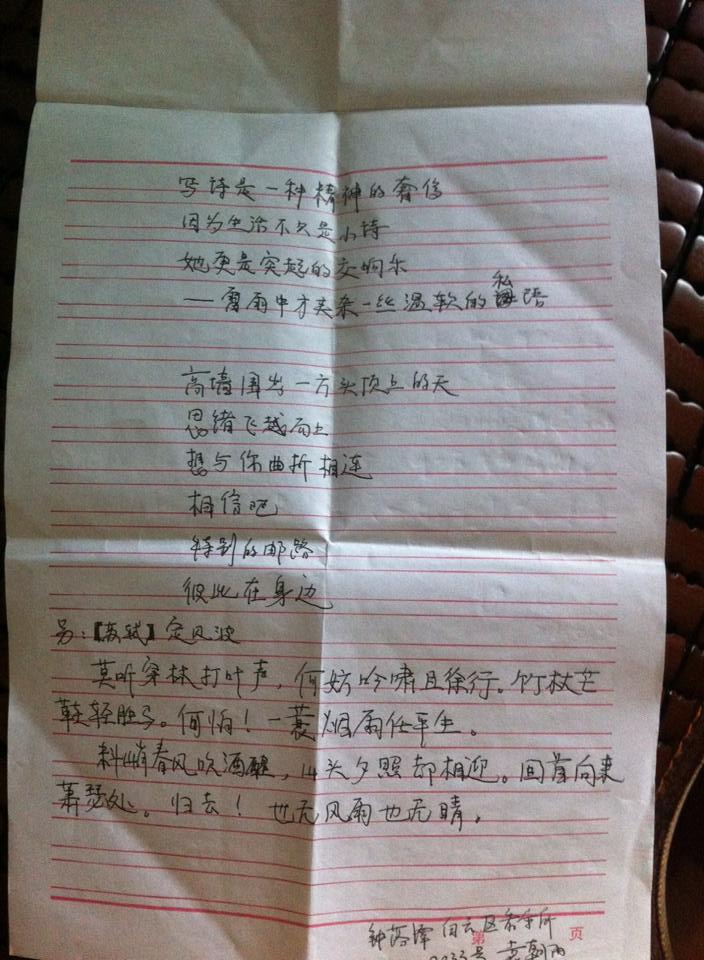 写诗是一种精神的奢侈
因为生活不久是小诗
她更是突起的交响乐
——雷雨中才夹杂一丝温软的私语
高墙围出一方头顶上的天
思绪飞越而上
想与你曲折相连
相信吧
特别的邮路
彼此在身边
另:【苏轼】定风波
莫听穿林打叶声,何妨吟啸且徐行。竹杖芒
鞋轻胜马。何怕!一蓑烟雨任平生。
料峭春风吹酒醒,山头夕照却相迎。回首向来
萧瑟处。归去!也无风雨也无晴。
钟落潭 白云区看守所
第 页
2033号 袁朝阳